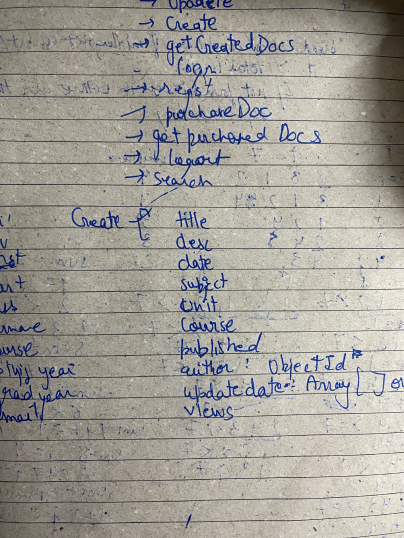 → Update
→ Create
→ get Created Docs
→ login
→ purchase Doc
→ get purchased Docs
→ logout
→ search
Create → { title
desc
date
subject
unit
course
published
year author : ObjectId
grad year update date : Array [ ] or
email views